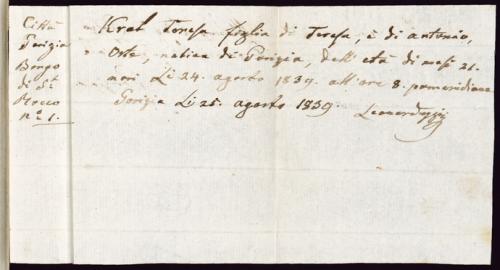 Città
Gorizia
Borgo
di St
Rocco
No 1.
Kral Teresa figlia di Teresa, è di Antonio,
Oste, nativa di Gorizia, dell'età di mesi 21.
mori Li 24. agosto 1839. all'ore 8. pomeridiane
Gorizia Li 25. agosto 1839.